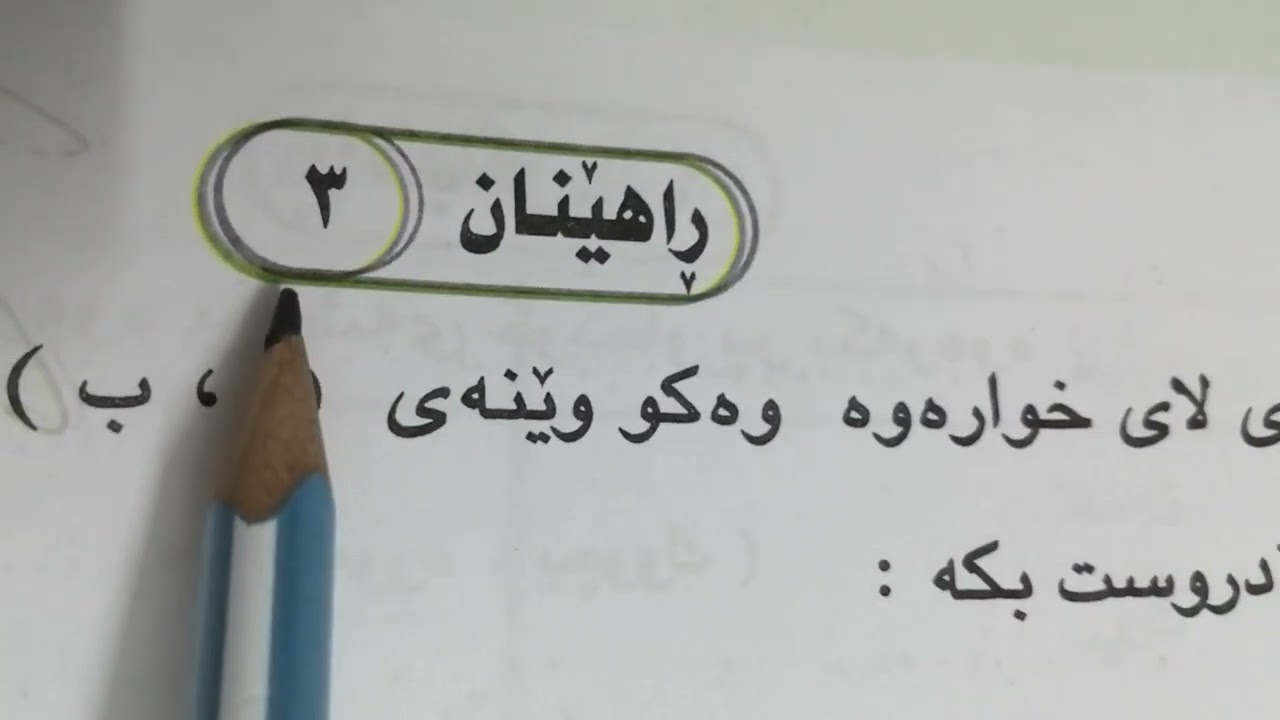 ڕاهێنان ٣
ی لای خوارەوە وەکو وێنەی ( ، ب )
دروست بکە :